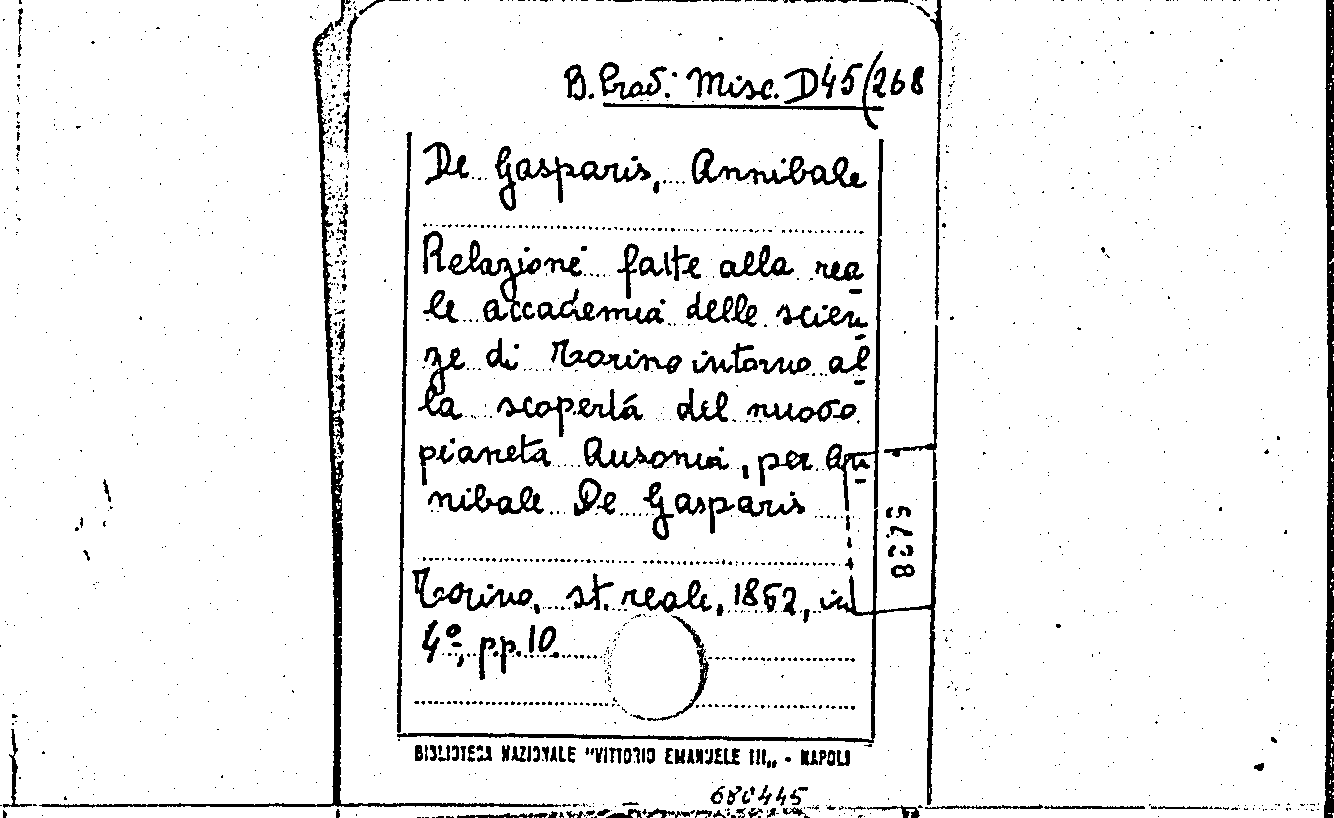 B. Prov. Misc. D45(268
De Gasparis, Annibale
Relazione fatte alla rea
le accademia delle scien
ze di Torino intorno al
la scoperta del nuovo
pianeta Ausonia, per An
nibale De Gasparis
Torino, st. reale, 1852, in
4º, pp. 10.
8375
BIBLIOTECA NAZIONALE "VITTORIO EMANUELE III„ - NAPOLI
680445